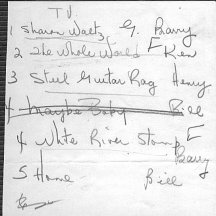 TV
1 Sharon Waltz G. Barry
2 The Whole World F Ken
3 Steel Guitar Rag Henry
4 Maybe Baby Bill
4 White River Stomp F
Barry
5 Home Bill